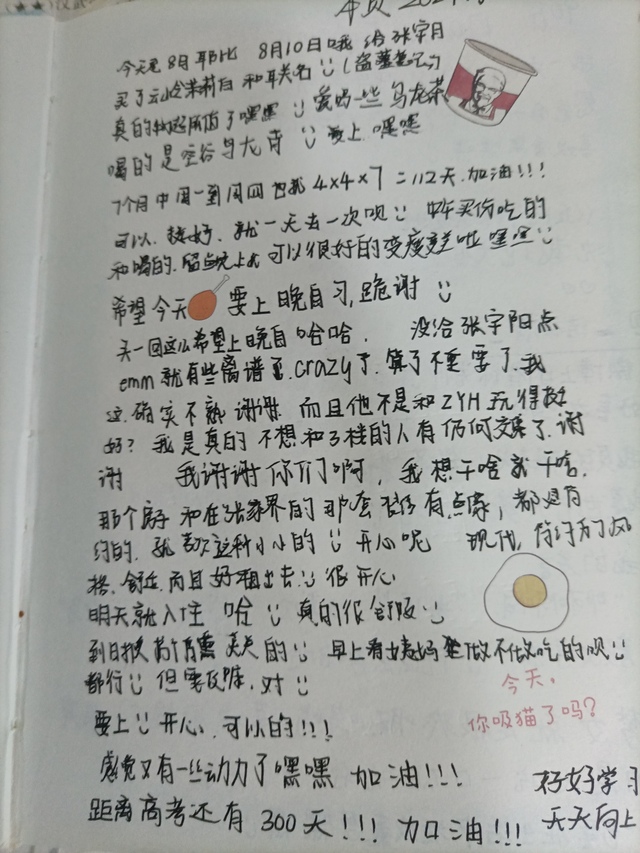 今天是8月耶比 8月10日哦 给张宇阳
买了云岭茉莉白和联名 (盗墓笔记)
真的物超所值了嘿嘿 爱喝一些乌龙茶
喝的是空谷乌龙 要上 嘿嘿
7个月中周一到周四也就 4×4×7=112天.加油!!!
可以.挺好.就一天去一次呗 中午买你吃的
和喝的.留点晚上 可以很好的变度 啦 嘿嘿
希望今天 要上晚自习,跪谢
头一回这么希望上晚自哈哈. 没给张宇阳点
emm 就有些离谱了.crazy了.算了不重要了.我
这.确实不熟 谢谢 而且他不是和ZYH玩得挺
好? 我是真的不想和3栋的人有任何交集了.谢
谢 我谢谢你们啊, 我想干啥就干啥.
那个房子和在张家界的那套 有点像, 都是有
约的. 就喜欢这种小小的 开心呢 现代, 简约的风
格.舒适.而且好租出去 很开心
明天就入住 哈 真的很舒服
到日 美美的 早上看 妈 做不做吃的呗
都行 但要 .对
要上 开心.可以的!!!
今天,
你吸猫了吗?
感觉又有一些动力了嘿嘿 加油!!!
距离高考还有300天!!! 加油!!!
好好学习
天天向上